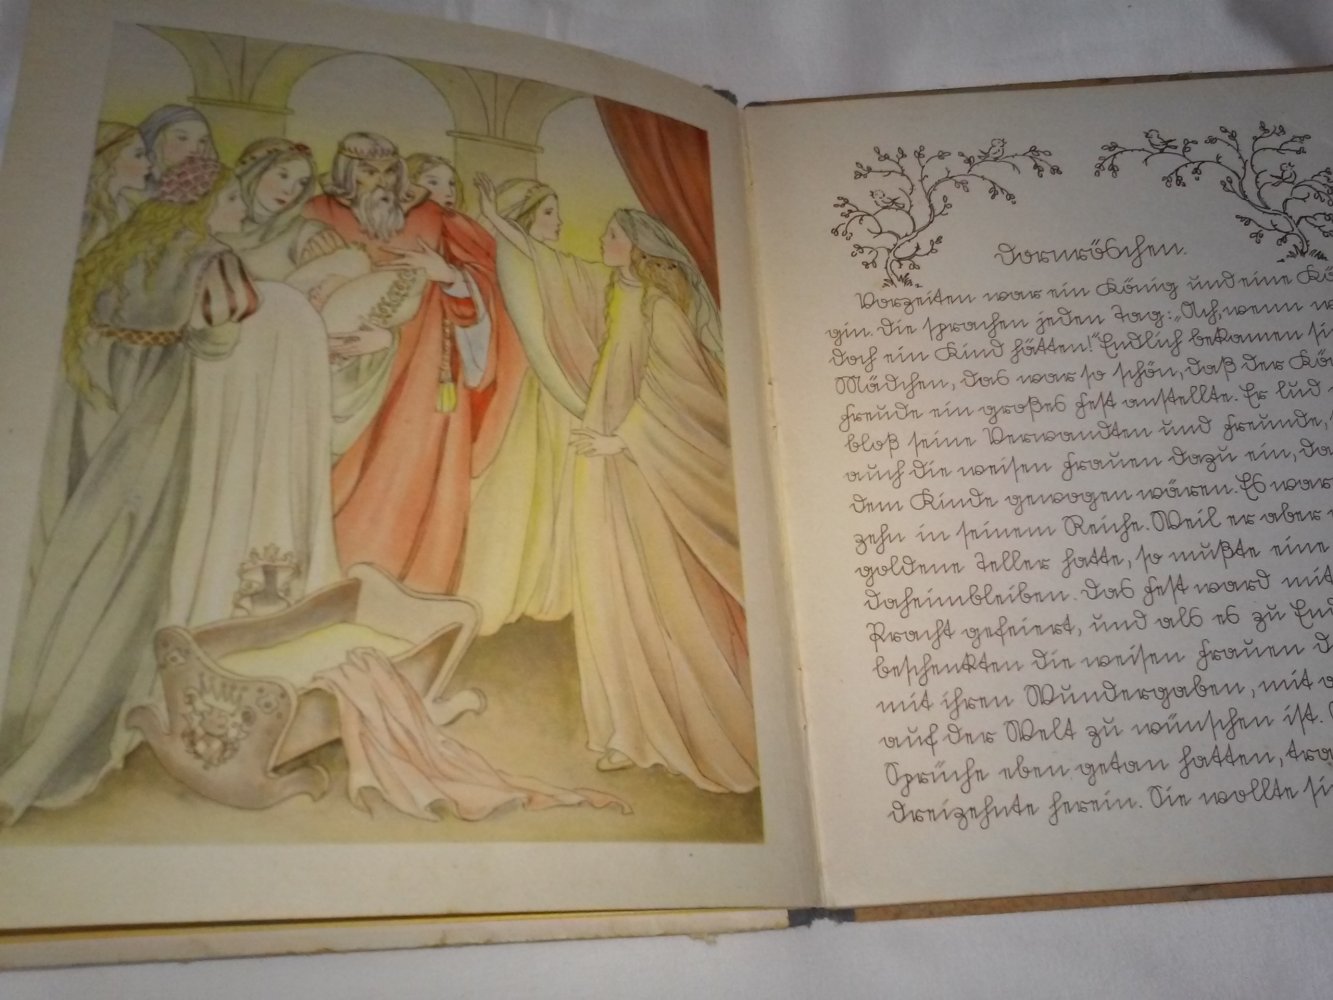 Dornröschen.
Vorzeiten war ein König und eine Kö
gin. die sprachen jeden Tag: „Ach, wenn w
doch ein Kind hätten!" Endlich bekamen si
Mädchen, das war so schön, daß der Kö
Freude ein großes Fest anstellte. Er lud
bloß seine Verwandten und Freunde,
auch die weisen Frauen dazu ein, da
dem Kinde gewogen wären. Es war
zehn in seinem Reiche. Weil er aber
goldene Teller hatte, so mußte eine
daheimbleiben. Das Fest ward mit
Pracht gefeiert, und als es zu End
beschenkten die weisen Frauen d
mit ihren Wundergaben, mit a
auf der Welt zu wünschen ist.
Sprüche eben getan hatten, tra
dreizehnte herein. Sie wollte si